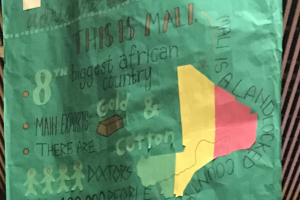 THIS IS MALI
8TH biggest african country
MAIN EXPORTS Gold &
Cotton
THERE ARE
DOCTORS
100,000 PEOPLE
MALI IS A LANDLOCKED
COUN